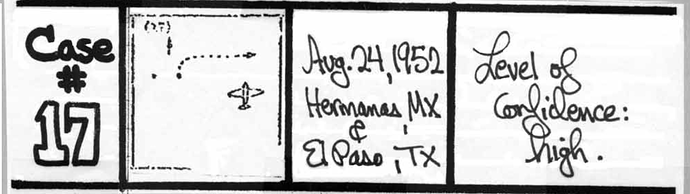 Case
#
17
(??)
Aug. 24, 1952
Hermanas, MX
&
El Paso, TX
Level of
Confidence:
high.